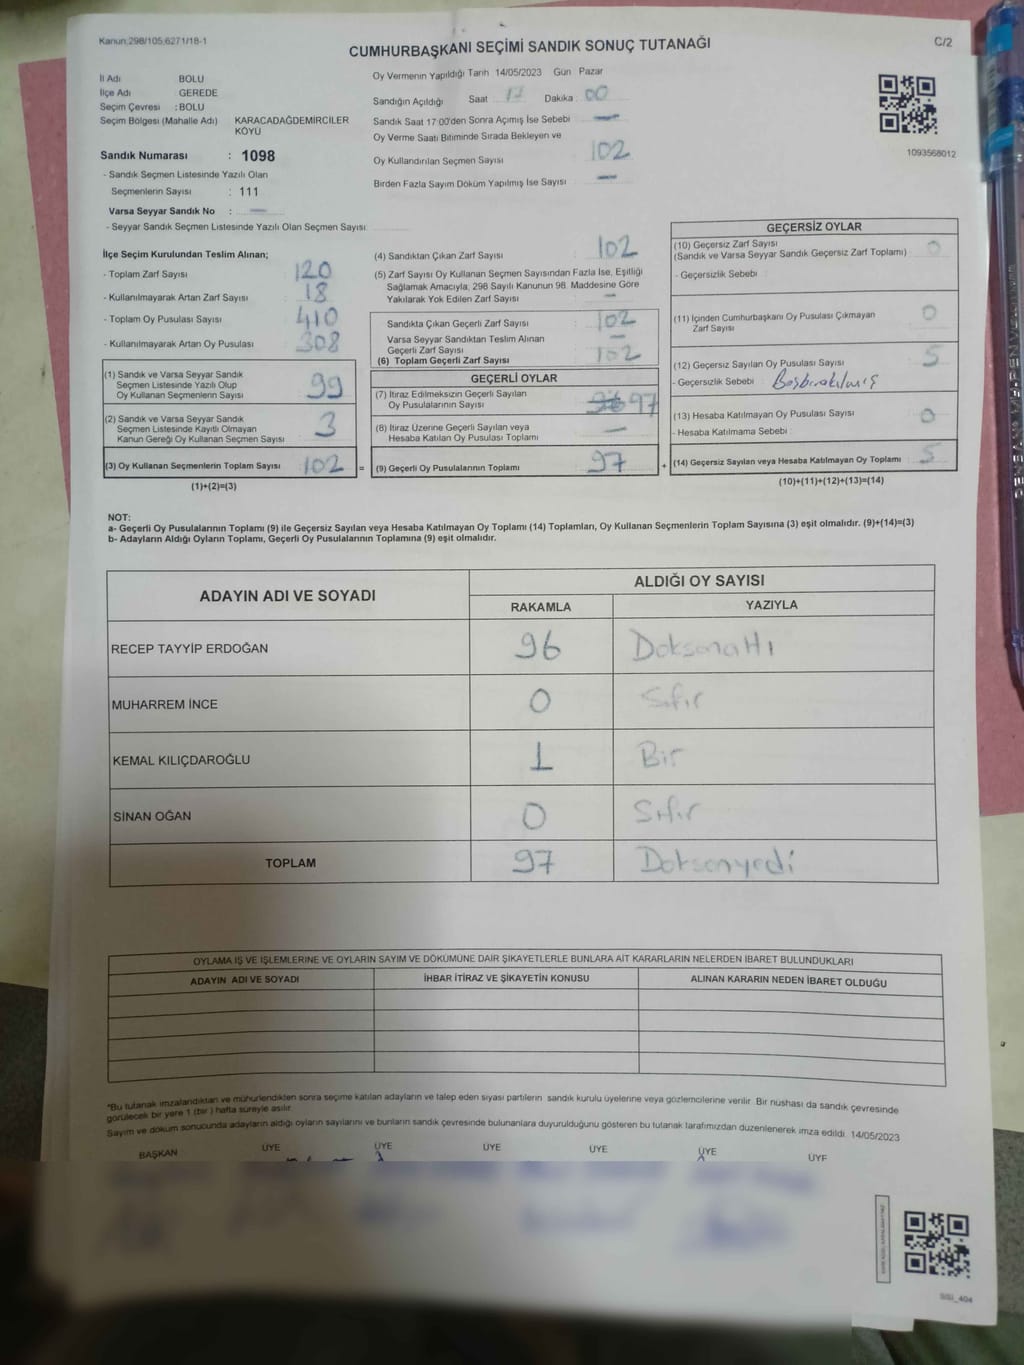 Kanun:298/105,6271/18-1
CUMHURBAŞKANI SEÇİMİ SANDIK SONUÇ TUTANAĞI
C/2
İl Adı BOLU
İlçe Adı GEREDE
Seçim Çevresi : BOLU
Seçim Bölgesi (Mahalle Adı) KARACADAĞDEMİRCİLER KÖYÜ
Sandık Numarası : 1098
- Sandık Seçmen Listesinde Yazılı Olan
Seçmenlerin Sayısı : 111
Varsa Seyyar Sandık No : —
- Seyyar Sandık Seçmen Listesinde Yazılı Olan Seçmen Sayısı:
Oy Vermenin Yapıldığı Tarih 14/05/2023 Gün Pazar
Sandığın Açıldığı Saat 17 Dakika 00
Sandık Saat 17:00'den Sonra Açımış İse Sebebi —
Oy Verme Saati Bitiminde Sırada Bekleyen ve
Oy Kullandırılan Seçmen Sayısı 102
Birden Fazla Sayım Döküm Yapılmış İse Sayısı —
1093568012
İlçe Seçim Kurulundan Teslim Alınan;
- Toplam Zarf Sayısı : 120
- Kullanılmayarak Artan Zarf Sayısı : 18
- Toplam Oy Pusulası Sayısı : 410
- Kullanılmayarak Artan Oy Pusulası : 308
(1) Sandık ve Varsa Seyyar Sandık
Seçmen Listesinde Yazılı Olup
Oy Kullanan Seçmenlerin Sayısı : 99
(2) Sandık ve Varsa Seyyar Sandık
Seçmen Listesinde Kayıtlı Olmayan
Kanun Gereği Oy Kullanan Seçmen Sayısı : 3
(3) Oy Kullanan Seçmenlerin Toplam Sayısı : 102 =
(1)+(2)=(3)
(4) Sandıktan Çıkan Zarf Sayısı : 102
(5) Zarf Sayısı Oy Kullanan Seçmen Sayısından Fazla İse, Eşitliği
Sağlamak Amacıyla, 298 Sayılı Kanunun 98. Maddesine Göre
Yakılarak Yok Edilen Zarf Sayısı : —
Sandıkta Çıkan Geçerli Zarf Sayısı : 102
Varsa Seyyar Sandıktan Teslim Alınan
Geçerli Zarf Sayısı : —
(6) Toplam Geçerli Zarf Sayısı : 102
GEÇERLİ OYLAR
(7) İtiraz Edilmeksizin Geçerli Sayılan
Oy Pusulalarının Sayısı : 97
(8) İtiraz Üzerine Geçerli Sayılan veya
Hesaba Katılan Oy Pusulası Toplamı : —
(9) Geçerli Oy Pusulalarının Toplamı : 97 +
GEÇERSİZ OYLAR
(10) Geçersiz Zarf Sayısı
(Sandık ve Varsa Seyyar Sandık Geçersiz Zarf Toplamı) : 0
- Geçersizlik Sebebi :
(11) İçinden Cumhurbaşkanı Oy Pusulası Çıkmayan
Zarf Sayısı : 0
(12) Geçersiz Sayılan Oy Pusulası Sayısı : 5
- Geçersizlik Sebebi : Boşbırakılmış
(13) Hesaba Katılmayan Oy Pusulası Sayısı : 0
- Hesaba Katılmama Sebebi :
(14) Geçersiz Sayılan veya Hesaba Katılmayan Oy Toplamı : 5
(10)+(11)+(12)+(13)=(14)
NOT:
a- Geçerli Oy Pusulalarının Toplamı (9) ile Geçersiz Sayılan veya Hesaba Katılmayan Oy Toplamı (14) Toplamları, Oy Kullanan Seçmenlerin Toplam Sayısına (3) eşit olmalıdır. (9)+(14)=(3)
b- Adayların Aldığı Oyların Toplamı, Geçerli Oy Pusulalarının Toplamına (9) eşit olmalıdır.
ADAYIN ADI VE SOYADI
ALDIĞI OY SAYISI
RAKAMLA YAZIYLA
RECEP TAYYİP ERDOĞAN 96 Doksanaltı
MUHARREM İNCE 0 Sıfır
KEMAL KILIÇDAROĞLU 1 Bir
SİNAN OĞAN 0 Sıfır
TOPLAM 97 Doksanyedi
OYLAMA İŞ VE İŞLEMLERİNE VE OYLARIN SAYIM VE DÖKÜMÜNE DAİR ŞİKAYETLERLE BUNLARA AİT KARARLARIN NELERDEN İBARET BULUNDUKLARI
ADAYIN ADI VE SOYADI İHBAR İTİRAZ VE ŞİKAYETİN KONUSU ALINAN KARARIN NEDEN İBARET OLDUĞU
*Bu tutanak imzalandıktan ve mühürlendikten sonra seçime katılan adayların ve talep eden siyasi partilerin sandık kurulu üyelerine veya gözlemcilerine verilir. Bir nüshası da sandık çevresinde
görülecek bir yere 1 (bir ) hafta süreyle asılır.
Sayım ve döküm sonucunda adayların aldığı oyların sayılarını ve bunların sandık çevresinde bulunanlara duyurulduğunu gösteren bu tutanak tarafımızdan düzenlenerek imza edildi. 14/05/2023
BAŞKAN ÜYE ÜYE ÜYE ÜYE ÜYE ÜYE
SSI_404